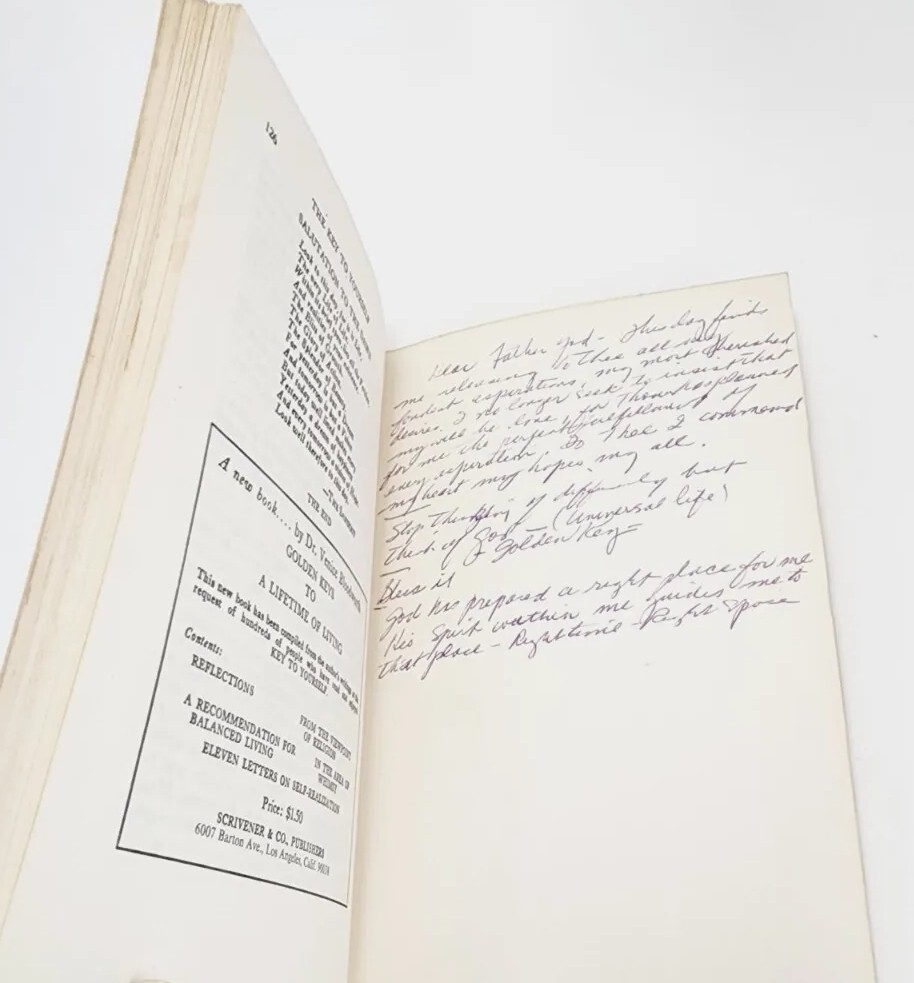 126
THE KEY TO YOURSELF
SALUTATION TO THE DAWN
Look to this day
For yesterday
But today well lived
Yesterday a dream of happiness
And every tomorrow a vision of Hope
Look well therefore to this day.
THE END
A new book.... by Dr. Venice Bloodworth
GOLDEN KEYS
TO
A LIFETIME OF LIVING
This new book has been compiled from the author's writings at the
request of hundreds of people who have read and enjoyed
KEY TO YOURSELF.
Contents:
REFLECTIONS
FROM THE VIEWPOINT
OF RELIGION
A RECOMMENDATION FOR
BALANCED LIVING
IN THE AREA OF
WHIMSY
ELEVEN LETTERS ON SELF-REALIZATION
Price: $1.50
SCRIVENER & CO., PUBLISHERS
6007 Barton Ave., Los Angeles, Calif. 90038
Dear Father God - This day finds
me releasing to Thee all my
fondest aspirations, my most cherished
desires. I no longer seek to insist that
my will be done, for Thou has planned
for me the perfect fulfillment of
every aspiration. To Thee I commend
my heart my hopes, my all.
Stop thinking of difficulty but
think of God - (Universal life)
Golden Key
Bless it
God has prepared a right place for me
His Spirit within me guides me to
that place - Right time - Right Space